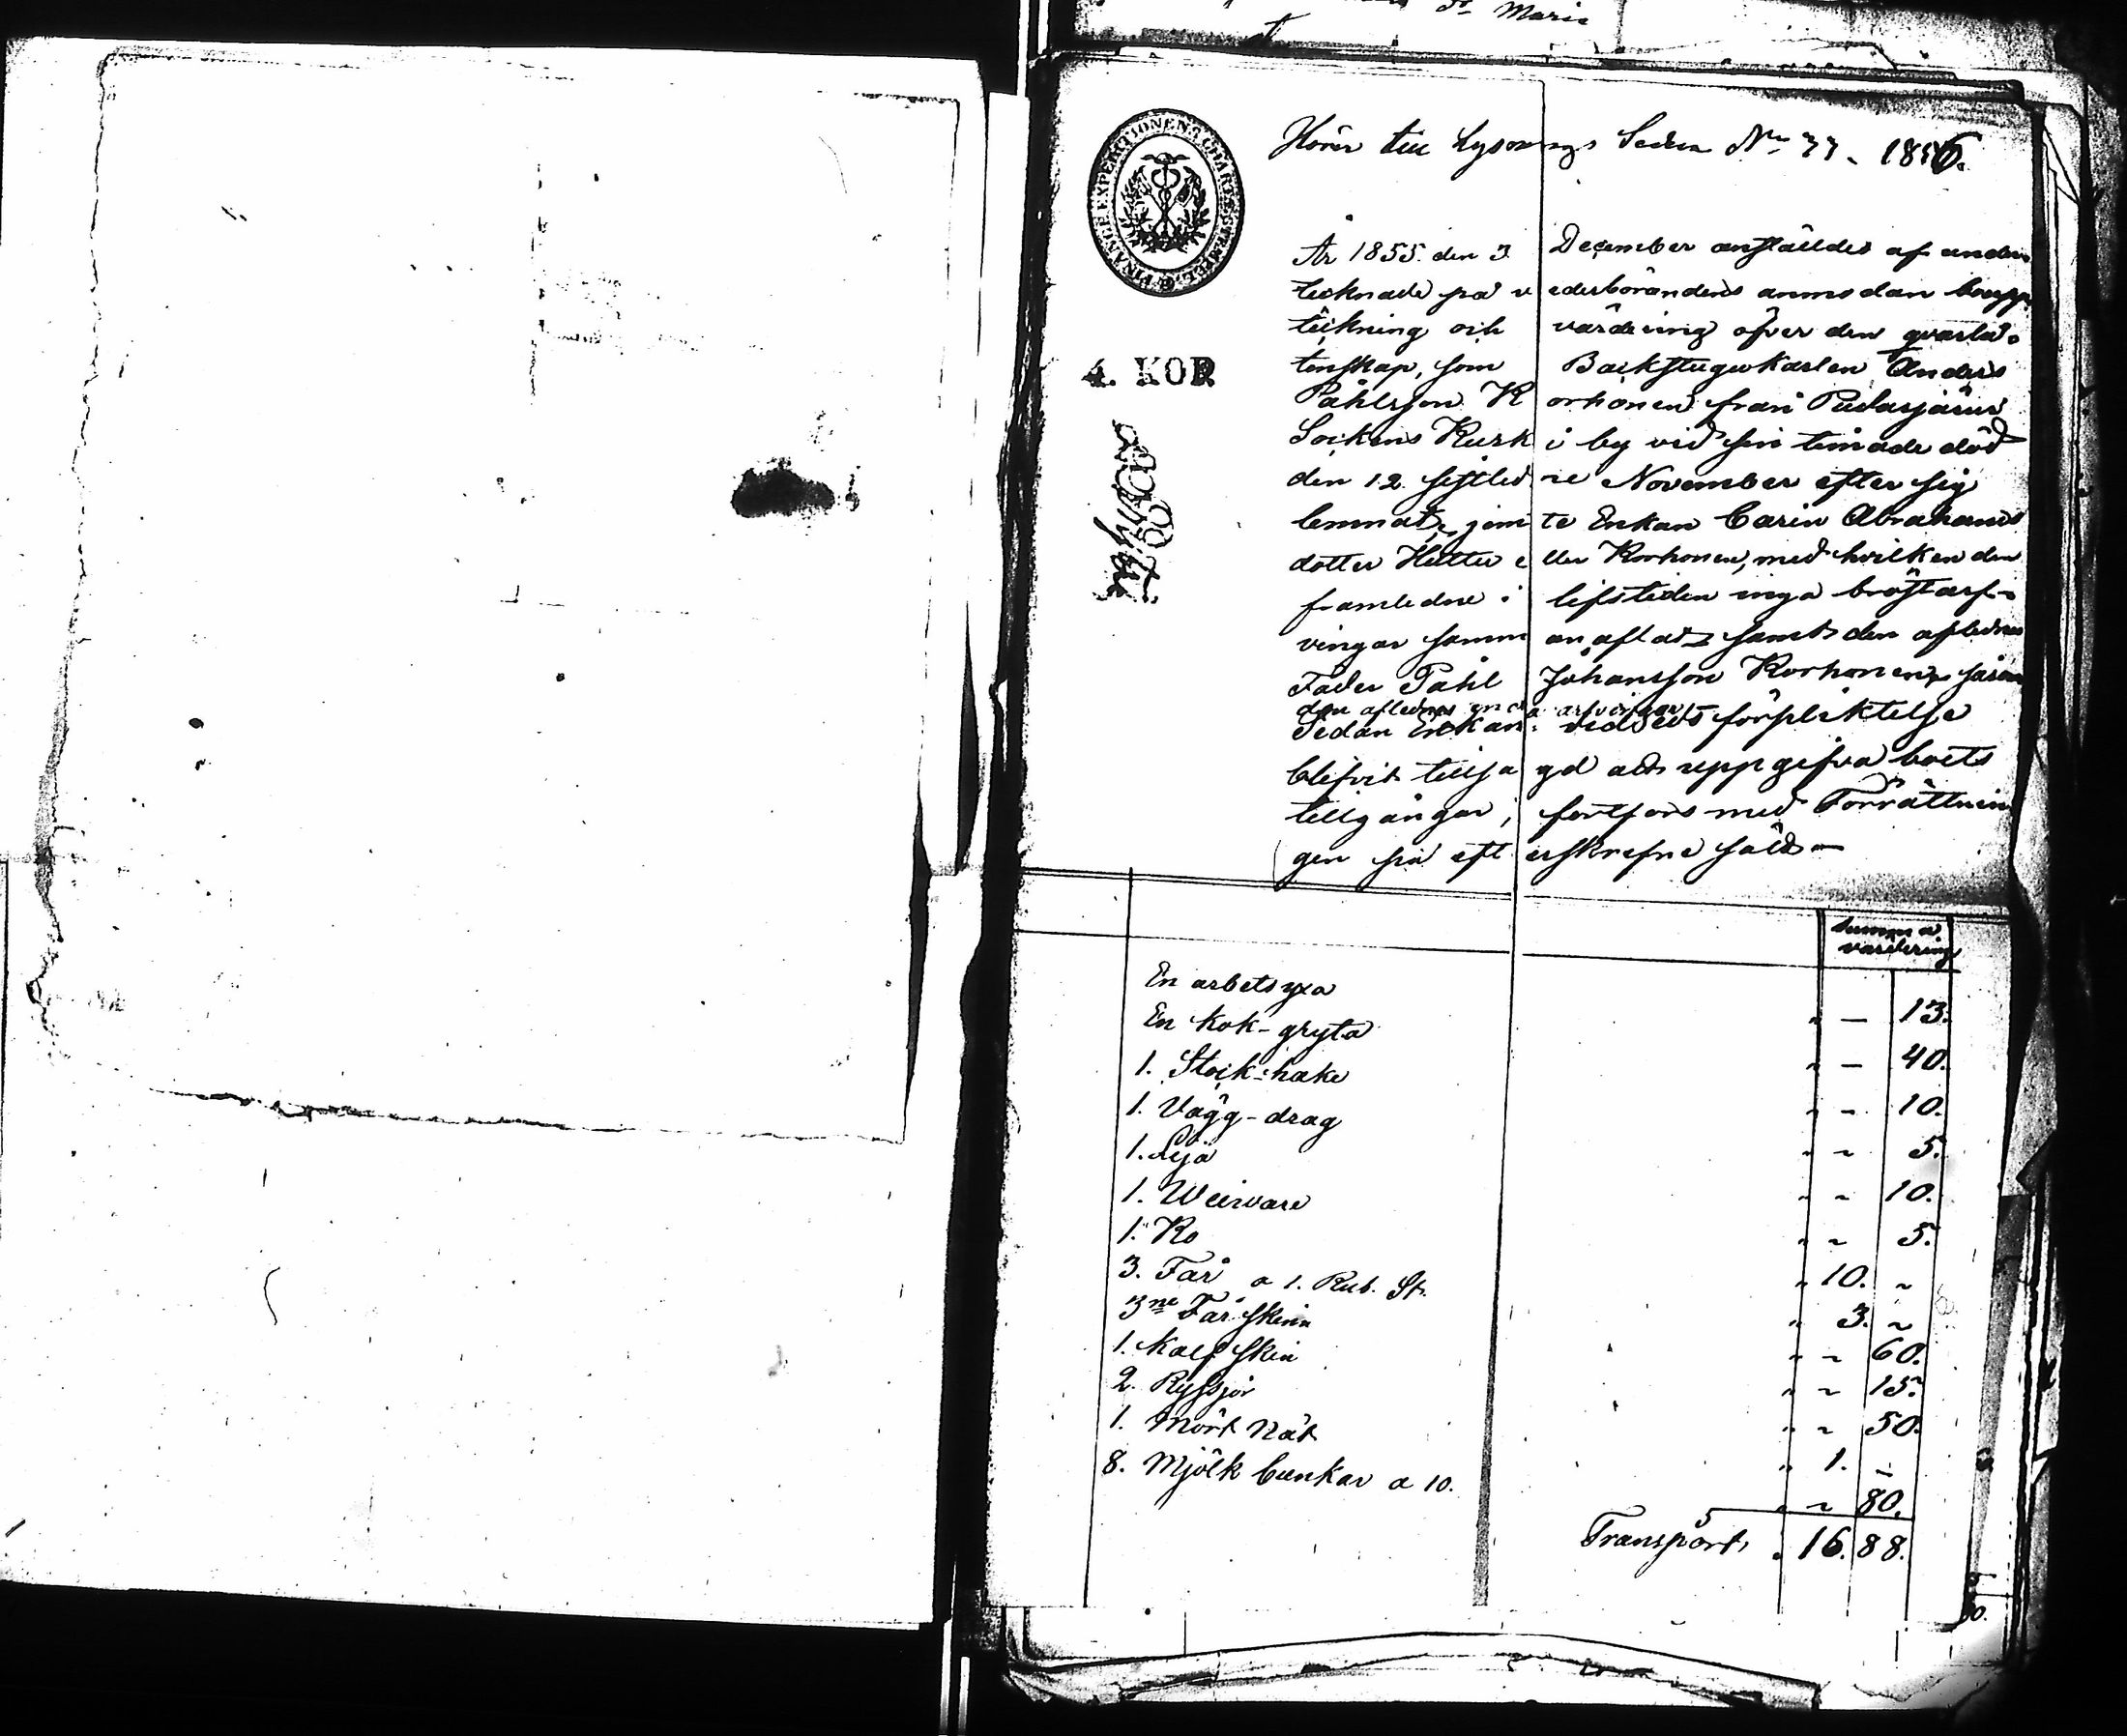 Hörer till Lysnings Sedeln No 77. 1856.
FINANCE EXPEDITIONENS CHARTÆ STEMPEL
4. KOP.
År 1855 den 3 December anstäldes af under-
tecknade på vederbörandens anmodan boupp-
teckning och värdering öfver den qvarlå-
tenskap, som Backstugukarlen Anders
Påhlsson Korhonen från Pudasjärvi
Sockens Kurki by vid sin timade död
den 12 sistledne November efter sig
lemnat, jemte Enkan Carin Abrahams
dotter Hettu eller Korhonen, med hvilken den
framledne i lifstiden inga bröstarf-
vingar sammanaflat samt den aflednes
Fader Påhl Johansson Korhonen, såsom
den aflednes enda arfvingar
Sedan Enkan vid Eds förpliktelse
blifvit tillsagd att uppgifva boets
tillgångar, fortfors med Förrättnin
gen på efterskrefne sätt
Summa
värdering
En arbetsyxa " — 13.
En kok-gryta " — 40.
1. Stock-hake " — 10.
1. Vägg-drag " " 5.
1. Lija " " 10.
1. " " 5.
1. Ko " 10. "
3. Får a 1. Rub. St. " 3. "
3ne Får skinn " " 60.
1. Kalf skin " " 15.
2. Ryssjor " " 50.
1. Mört Nät " 1. "
8. Mjölk bunkar a 10. " " 80.
Transport, 16. 88.